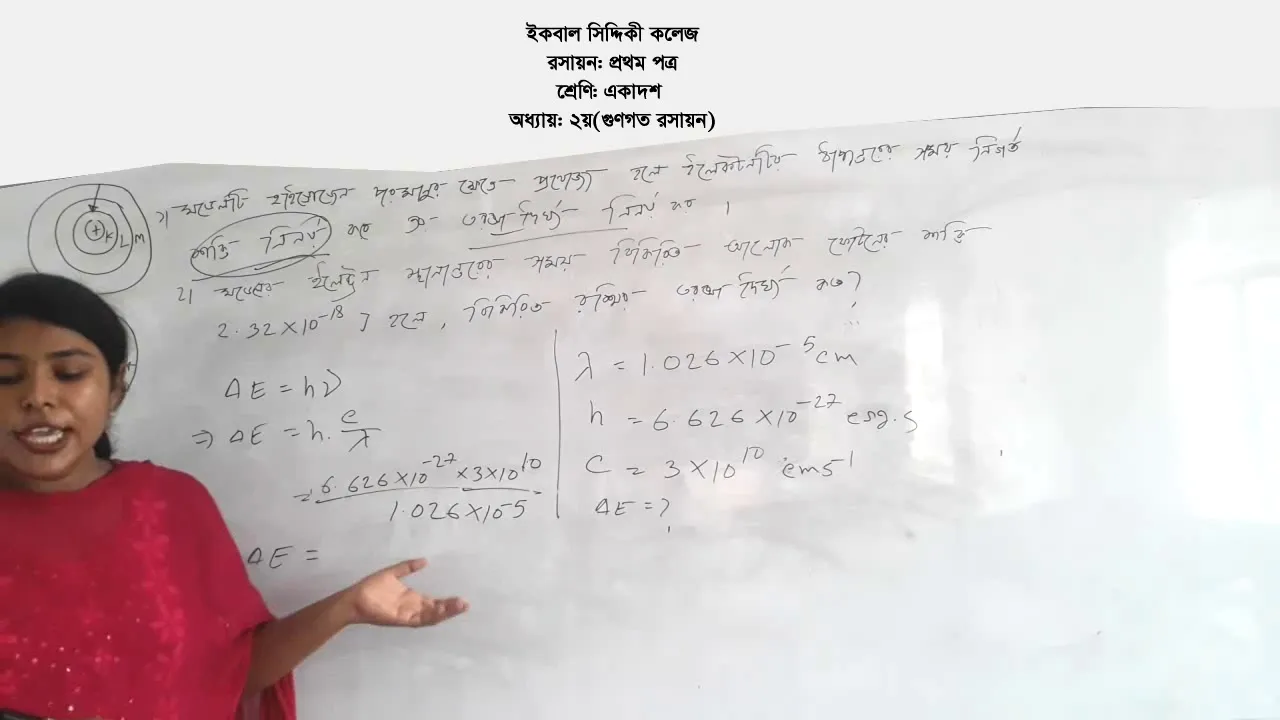 ইকবাল সিদ্দিকী কলেজ
রসায়ন: প্রথম পত্র
শ্রেণি: একাদশ
অধ্যায়: ২য়(গুণগত রসায়ন)
+ K L M
১) মডেলটি হাইড্রোজেন পরমাণুর ক্ষেত্রে প্রযোজ্য হলে ইলেকট্রনটির ধাপান্তরের সময় নির্গত
শক্তি নির্ণয় কর ও তরঙ্গ দৈর্ঘ্য নির্ণয় কর ।
২। মডেলের ইলেকট্রন স্থানান্তরের সময় বিকিরিত আলোক ফোটনের শক্তি
2.32×10⁻¹⁸ J হলে, বিকিরিত রশ্মির তরঙ্গ দৈর্ঘ্য কত?
ΔE = hν
⇒ ΔE = h. c/λ
= 6.626×10⁻²⁷ × 3×10¹⁰ / 1.026×10⁻⁵
ΔE =
λ = 1.026×10⁻⁵ cm
h = 6.626×10⁻²⁷ erg.s
C = 3×10¹⁰ cms⁻¹
ΔE = ?